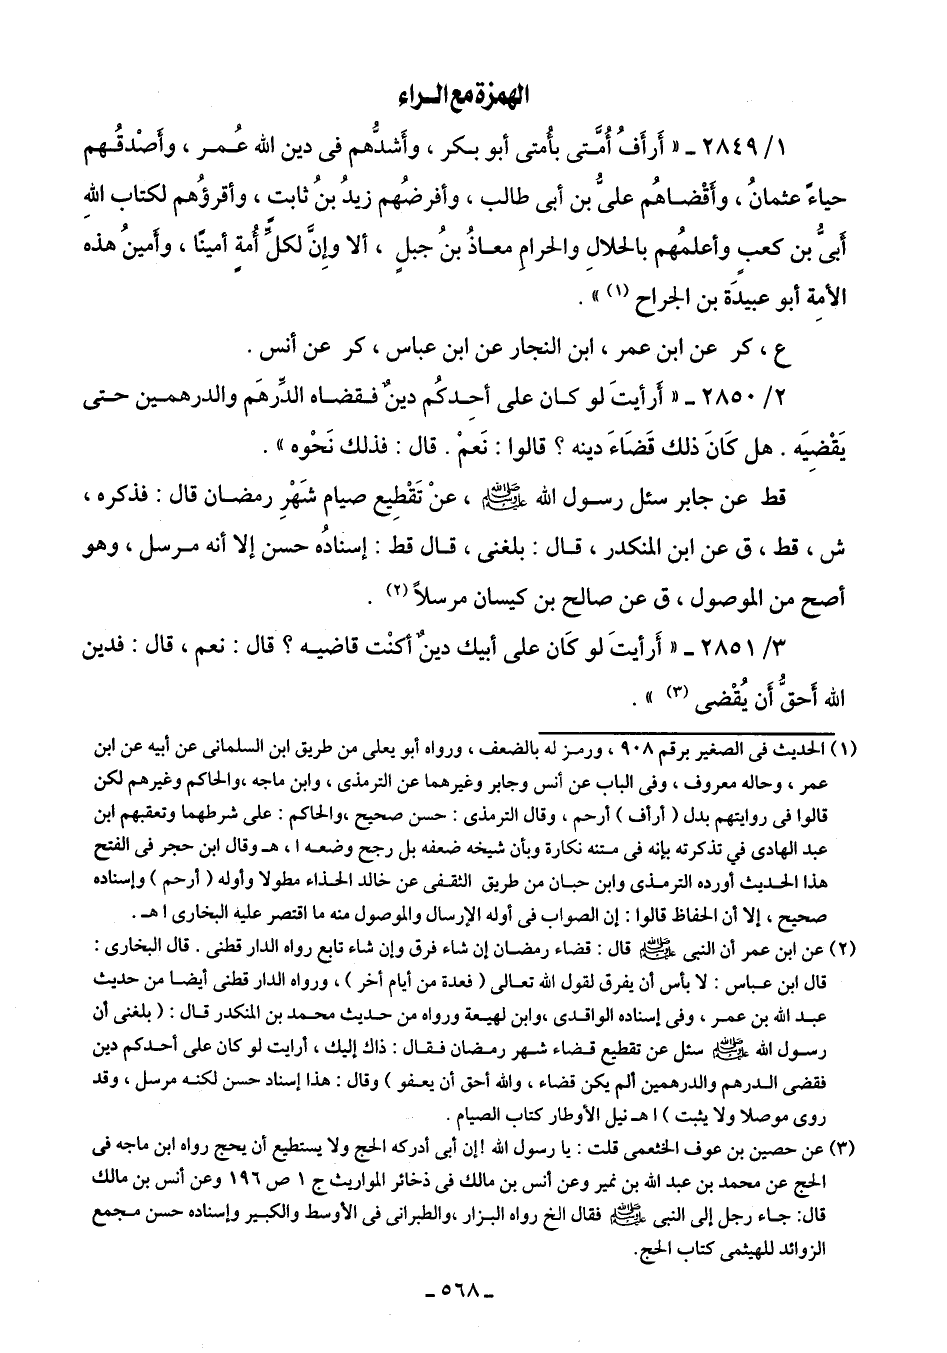 الهمزة مع الراء
٢٨٤٩/١ ـ « أَرأَفُ أُمَّتى بأُمتى أبو بكر ، وأَشدُّهم فى دين الله عُمـر ، وأَصْدقُـهم
حياءً عثمانُ ، وأَقْضـاهُم علىُّ بن أبى طالب ، وأفرضُهم زيدُ بنُ ثابت ، وأقرؤُهم لكتاب الله
أَبىُّ بن كعبٍ وأعلمُهم بالحلالِ والحرامِ معاذُ بنُ جبلٍ ، ألا وإنَّ لكلِّ أُمةٍ أمينًا ، وأمينُ هذه
الأمةِ أبو عبيدَة بن الجراح (١) » .
ع ، كر عن ابن عمر ، ابن النجار عن ابن عباس ، كر عن أنس .
٢٨٥٠/٢ ـ « أَرأيتَ لو كـان على أحدِكُم دينٌ فـقضـاه الدِّرهَم والدرهمـين حـتى
يَقْضِيَه . هل كَانَ ذلك قَضَاءَ دينه ؟ قالوا : نَعمْ . قال : فذلك نَحْوه » .
قط عن جابر سئل رسـول الله ﷺ ، عنْ تَقْطِيع صيام شَهْرِ رمضـان قال : فذكره ،
ش ، قط ، ق عن ابن المنكدر ، قـال : بلغنى ، قـال قط : إسنادُه حسن إلا أنه مـرسل ، وهو
أصح من الموصول ، ق عن صالح بن كيسان مرسلاً (٢) .
٢٨٥١/٣ ـ « أَرأيتَ لو كَان على أبيك دينٌ أكنْت قاضيـه ؟ قال : نعم ، قال : فدين
الله أَحقُّ أَن يُقْضى (٣) » .
(١) الحديث فى الصغير برقم ٩٠٨ ، ورمـز له بالضعف ، ورواه أبو يعلى من طريق ابن السلمانى عن أبيه عن ابن
عمر ، وحاله معروف ، وفى الباب عن أنس وجابر وغيرهما عن الترمذى ، وابن ماجه ،والحاكم وغيرهم لكن
قالوا فى روايتهم بدل ( أرأف ) أرحم ، وقال الترمذى : حسن صحيح ،والحاكم : على شرطهما وتعقبهم ابن
عبد الهادى في تذكرته بإنه فى مـتنه نكارة وبأن شيخه ضعفه بل رجح وضعـه ا ، هـ وقال ابن حجر فى الفتح
هذا الحديث أورده الترمـذى وابن حبان من طريق الثقفى عن خالد الحذاء مطولا وأوله ( أرحم ) وإسناده
صحيح ، إلا أن الحفاظ قالوا : إن الصواب فى أوله الإرسال والموصول منه ما اقتصر عليه البخارى ا هـ .
(٢) عن ابن عمر أن النبى ﷺ قال : قضاء رمضـان إن شاء فرق وإن شاء تابع رواه الدار قطنى . قال البخارى :
قال ابن عـباس : لا بأس أن يفرق لقول الله تعـالى ( فعدة من أيام أخر ) ، ورواه الدار قطنى أيضـا من حديث
عبـد الله بن عمـر ، وفى إسناده الواقـدى ،وابن لهيعة ورواه من حديث محمـد بن المنكدر قـال : ( بلغنى أن
رسول الله ﷺ سئل عن تقطيع قـضاء شـهر رمضـان فـقال : ذاك إليك ، أرايت لو كان على أحدكم دين
فقضى الـدرهم والدرهمين ألم يكن قضاء ، والله أحق أن يعـفو ) وقال : هـذا إسناد حسن لكنـه مرسل ، وقد
روى موصلا ولا يثبت ) ا هـ نيل الأوطار كتاب الصيام .
(٣) عن حصين بن عوف الخثعمى قلت : يا رسول الله !إن أبى أدركه الحج ولا يستطيع أن يحج رواه ابن ماجه فى
الحج عن محمد بن عبد الله بن نمير وعن أنس بن مالك فى ذخائر المواريث ج ١ ص ١٩٦ وعن أنس بن مالك
قال: جـاء رجل إلى النبى ﷺ فقال الخ رواه البزار ،والطبرانى فى الأوسط والكبير وإسناده حسن مـجمع
الزوائد للهيثمى كتاب الحج.
ـ ٥٦٨ ـ